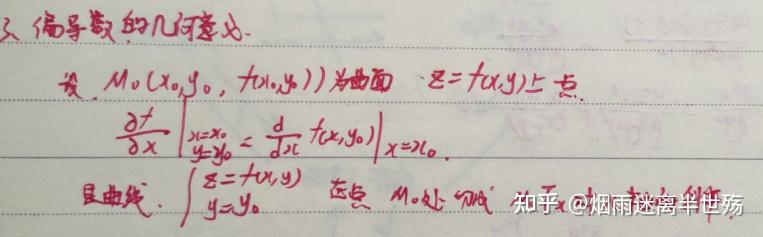 3、偏导数的几何意义.
设 M₀(x₀,y₀, f(x₀,y₀))为曲面 z=f(x,y)上一点
∂f/∂x |x=x₀ y=y₀ = d/dx f(x,y₀)|x=x₀.
是曲线. { z=f(x,y) y=y₀ 在点 M₀处切线
知乎 @烟雨迷离半世殇